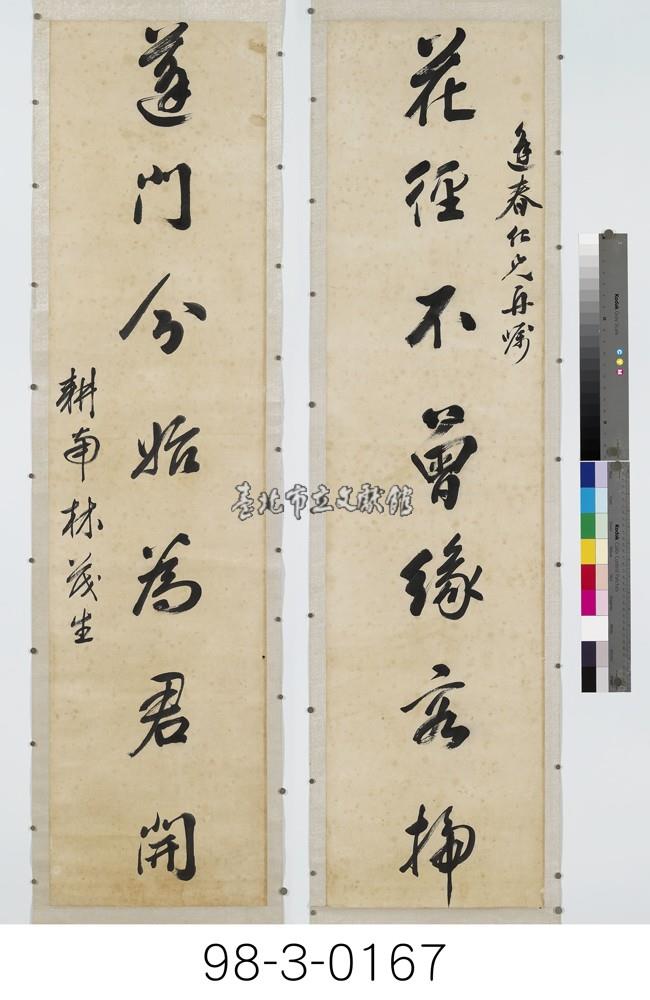 逢春仁兄再囑
花徑不曾緣客掃
蓬門今始為君開
耕南林茂生
臺北市立文獻館
Kodak
C Y M
Kodak
98-3-0167